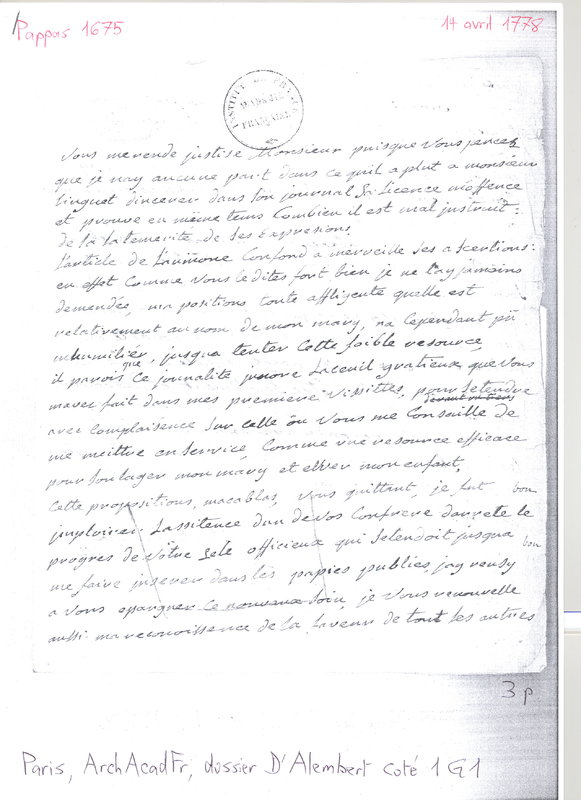 Pappas 1675
14 avril 1778
INSTITUT DE FRANCE
FRANÇAISE
Vous me rende justise Monsieur puisque Vous pencez
que je nay aucune part dans ce quil a plut a monsieur
linguet dincerer dans son journal Sa licence m'offence
et prouve en même tems Combien il est mal justruit:
de la la temerité de ses Expresions
L'article de Laumone Confond a merveille ses ascertions:
en effet Comme Vous le dites fort bien je ne l'ay jamains
demendée, ma positions toute affligente quelle est
relativement au nom de mon mary, na Cependant pû
mhumilier, jusqua tenter Cette faible resource,
il parois que ce journalite jnore Laceuil gratieux que Vous
mavez fait dans mes premiere Vissittes, pour setendre
avec Complaisence Sur celle où Vous me Conseille de
me meittre en Service, Comme une resource efficace
pour Soulager mon mary et elever mon enfant,
Cette propositions, macablas, Vous quittant, je fut
jmplorer Lassitence dun de vos Confrere darrete le
progres de Vôtre Zele officieux qui setendoit jusqua
me faire jnserer dans les papies publies, jay reusy
a Vous epargner Ce nouveau Soin, je Vous renouvelle
aussi ma reconoissence de la faveur de tout les autres
bon
bon
3 p
Paris, ArchAcadFr, dossier D'Alembert coté 1G1